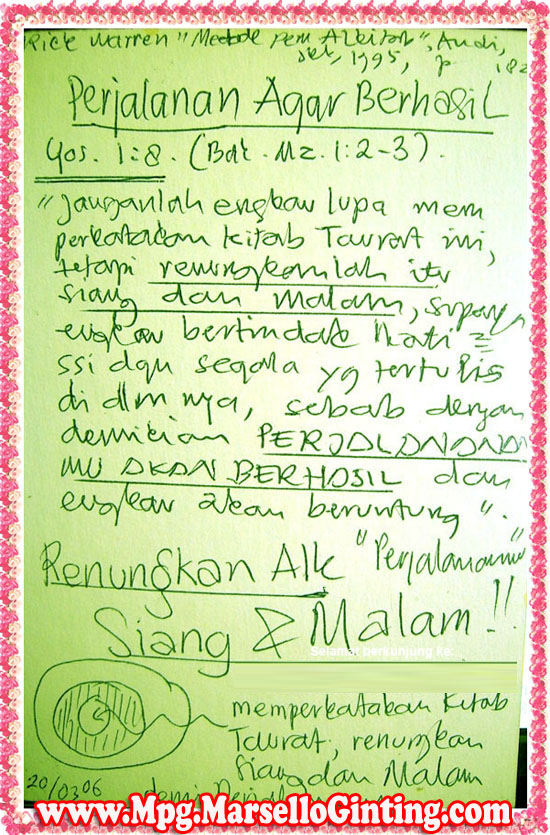 Rick Warren "Metode Pem Alkitab", Andi,
1995, p
Perjalanan Agar Berhasil
Yos. 1:8. (Bdk. Mz. 1:2-3).
"Janganlah engkau lupa mem
perkatakan kitab Taurat ini,
tetapi renungkanlah itu
siang dan malam, supaya
engkau bertindak hati =
ssi dgn segala yg tertulis
di dlm nya, sebab dengan
demikian PERJALANAN
MU AKAN BERHASIL dan
engkau akan beruntung".
Renungkan Alk "Perjalananmu"
Siang & Malam!!
Selamat berkunjung ke:
memperkatakan Kitab
Taurat, renungkan
Siang dan Malam
20/0306 demi
www.Mpg.MarselloGinting.com